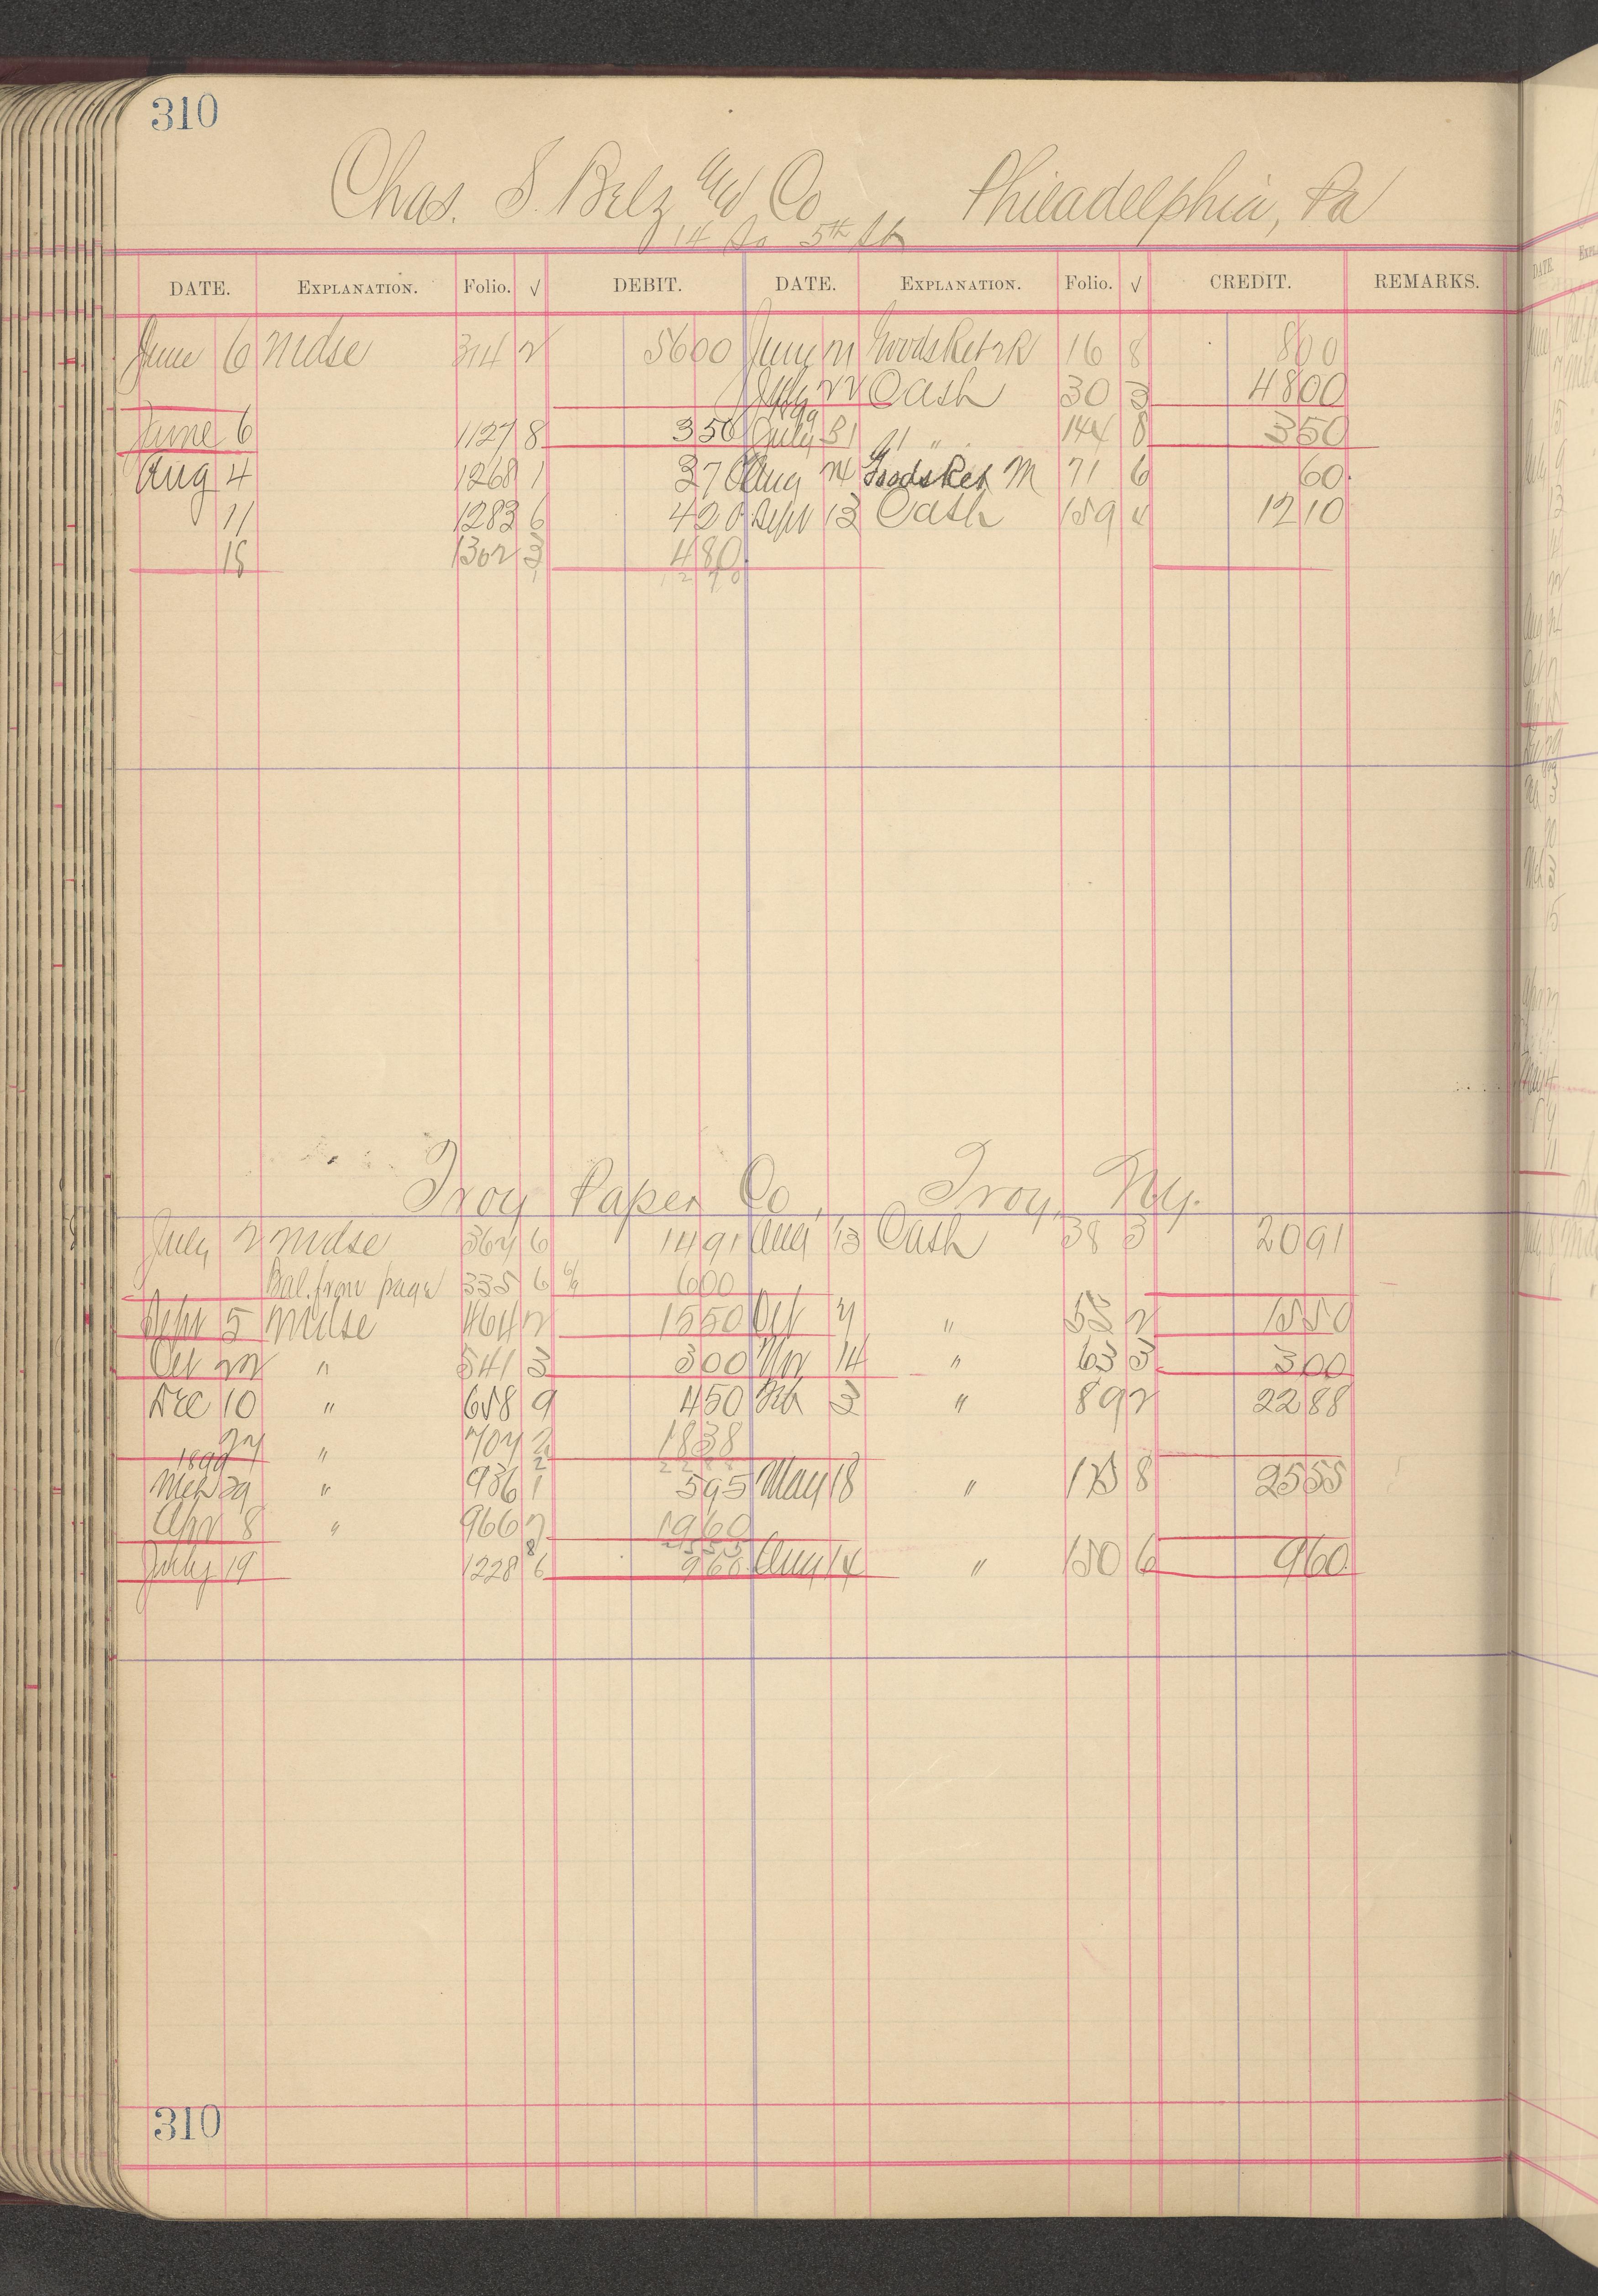 310
Chas. S. Belz Co Philadelphia, Pa
14 So 5th St
DATE. EXPLANATION. Folio. √ DEBIT. DATE. EXPLANATION. Folio. √ CREDIT. REMARKS.
June 6 Mdse 314 2 5600 June 21 16 8 800
July 22 Cash 30 3 4800
1899
June 6 1127 8 350 July 31 " 144 8 350
Aug 4 1268 1 370 Aug 24 71 6 60
11 1283 6 420 Sept 13 Cash 159 4 1210
18 1302 3 480
1270
Troy Paper Co, Troy, Ny.
July 2 Mdse 367 6 1491 Aug 13 Cash 38 3 2091
Bal. from page 335 6 % 600
Sept 5 Mdse 464 2 1550 Oct 7 " 55 2 1550
Oct 22 " 541 3 300 Nov 14 " 63 3 300
Dec 10 " 658 9 450 Feb 3 " 89 2 2288
27 " 707 2 1838
1899 2 2288
Mch 29 " 936 1 595 May 18 " 125 8 2555
Apr 8 " 966 7 1960
8 2555
July 19 1228 6 960 Aug 14 " 150 6 960
310